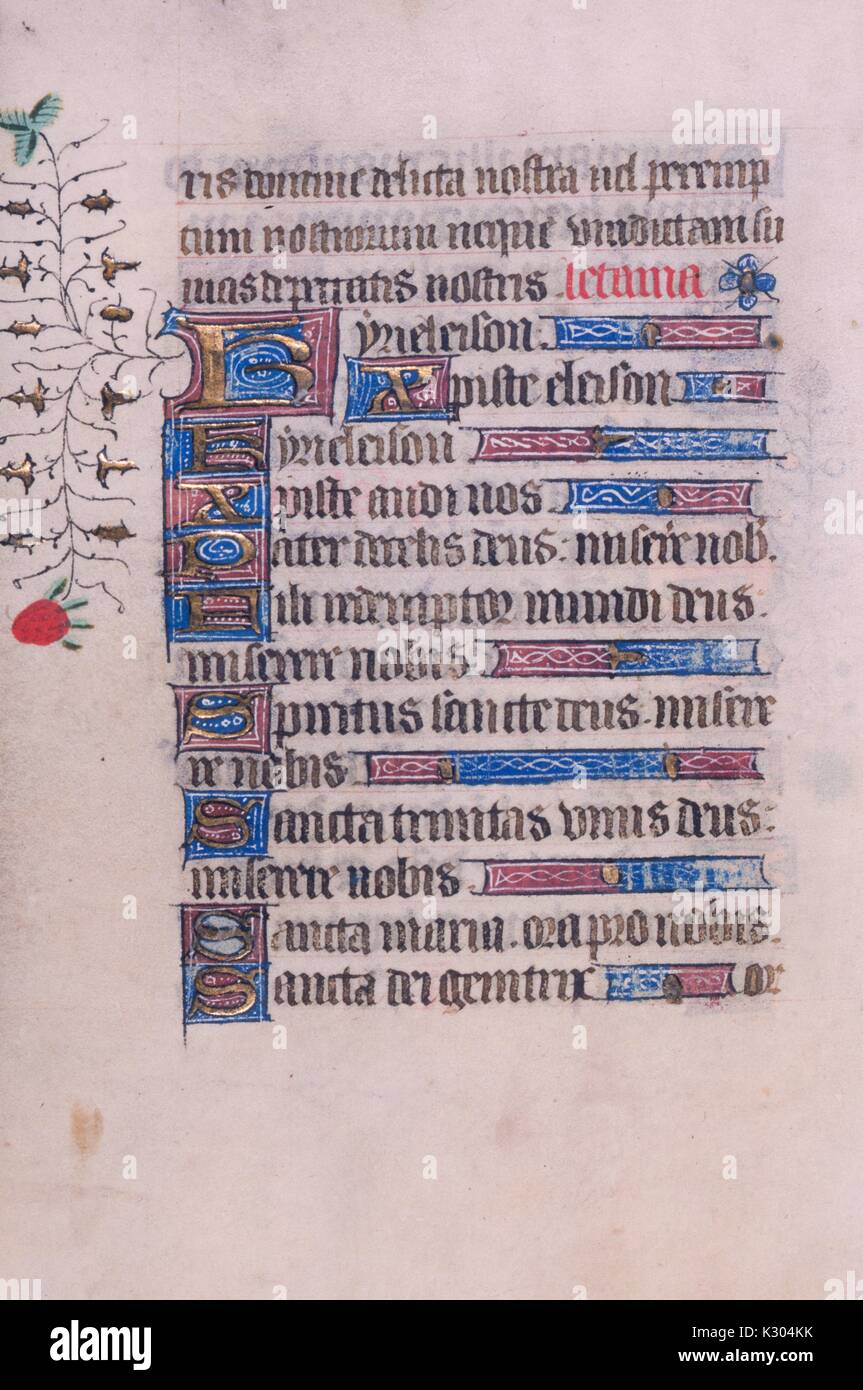 ris domine delicta nostra uel parentup
tum nostrorum neque vindictam su
mas de peccatis nostris letania
Kyrieleison.
Xpiste eleison
Kyrieleison
Xpiste audi nos
Pater de celis deus: miserere nob.
Fili redemptor mundi deus.
miserere nobis
Spiritus sancte deus. misere
re nobis
Sancta trinitas vnus deus:
miserere nobis.
Sancta maria. ora pro nobis.
Sancta dei genitrix or
a alamy stock photo
K304KK
www.alamy.com